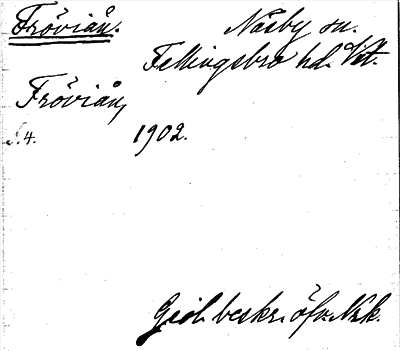 Fröviån. Näsby sn.
Fellingsbro hd. Vstm.
Fröviån,
S. 4. 1902.
Geol. beskr. öfv. Nrk.